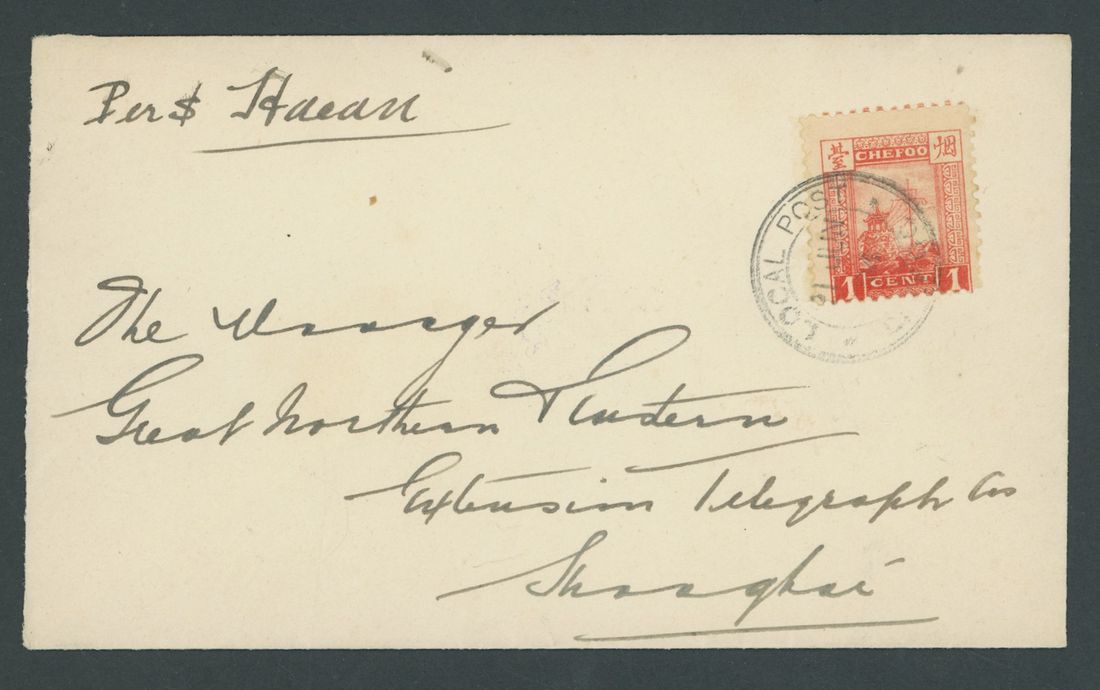 Per $ Haean
臺 CHEFOO 烟
LOCAL POST
21 JUN
1 CENT 1
The Manager
Great Northern & Eastern
Extension Telegraph Cos
Shanghai